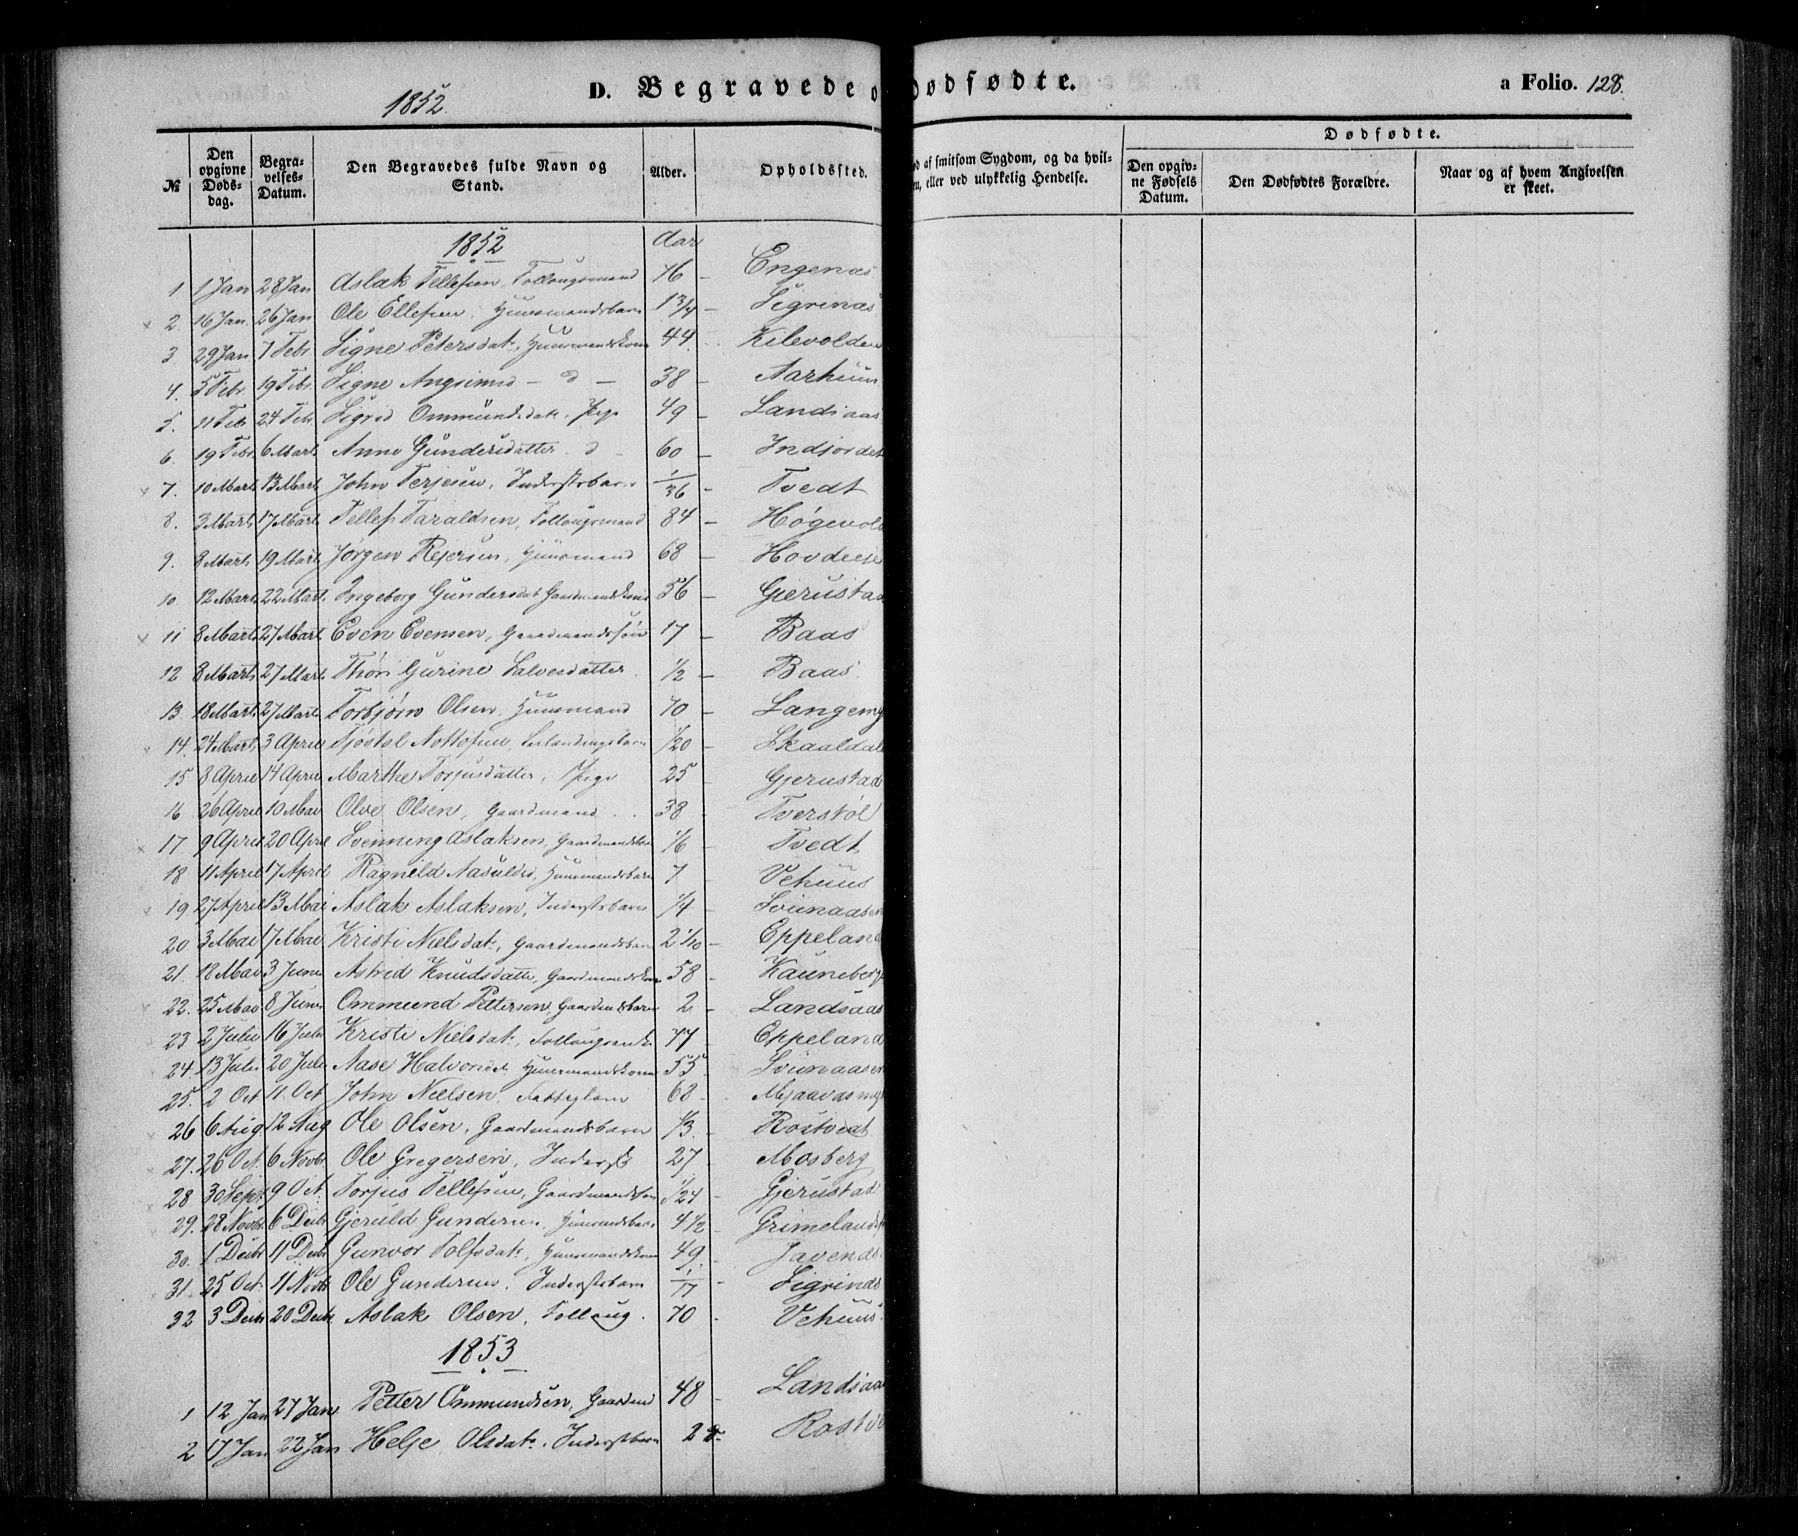 D. Begravede o
Dødfødte.
a Folio. 128.
1852.
№
Den opgivne Døds-dag.
Begra-velses-Datum.
Den Begravedes fulde Navn og Stand.
Alder.
Opholdssted.
d af smitsom Sygdom, og da hvil-
en, eller ved ulykkelig Hendelse.
Dødfødte.
Den opgiv-ne Fødsels Datum.
Den Dødfødtes Forældre.
Naar og af hvem Angivelsen er skeet.
1852 Aar
1 1 Jan 28 Jan Aslak Tellefsen, Follougsmand 76 – Engenæs
2. 16 Jan. 26 Jan Ole Ellefsen, Huusmandsbarn 1 3/4 – Sigrinæs
3 29 Jan 7 Febr Signe Petersdatr, Huusmandskone 44 Kilevolden
4. 5 Febr. 19 Febr. Signe – d – 38 – Aarhuus
5. 11 Feb 24 Febr Sigrid Ommundsdatr. Pige 49 – Landsaas
6. 19 Febr 6 Mart Anne Gundersdatter d – 60 – Indjordet
7. 10 Mart 13 Mart John Terjesen, Inderstbarn 1/36 – Tvedt
8. 3 Mart 17 Mart Tellef Taraldsen, Follougsmand 84 – Høgevold
9. 8 Mart 19 Mart Jørgen Rejersen, Huusmand 68 – Hovde
10. 12 Mart 22 Mart Ingeborg Gundersdat Gaardmandskone 56 – Gjerustad
11 8 Mart 27 Mart Even Evensen, Gaardmandssøn 17 – Baas
12 8 Mart 27 Mart Thon Gurine Salvesdatter 1/2 – Baas.
13 18 Mart 27 Mart Torbjørn Olsen, Huusmand 70 – Langemy
14. 24 Mart 3 April Tjøstol Nottofsen, 1/20 – Skaaldal
15 8 April 14 April Marthe Torjusdatter, Pige 25 – Gjerustad
16 26 April 10 Mai Olve Olsen, Gaardmand 38 – Tverstøl
17 9 April 20 April Svenning Aslaksen, Gaardmandsbarn 1/6 – Tvedt
18 11 April 17 April Ragnild Aasulds, Huusmandsbarn 7 Vehuus
19. 27 April 13 Mai Aslak Aslaksen, Inderstbarn 1/4 – Svinaasen
20 3 Mai 17 Mai Kristi Nielsdatr, Gaardmandsbarn 2 1/10 – Eppeland
21. 18 Mai 3 Juni Astrid Knudsdatter, Gaardmandskone 58 – Kauneberg
22. 25 Mai 8 Juni Ommund Pettersen, Gaardmdsbarn 2 – Landsaas
23 2 Julii 16 Julii Kristi Nielsdatr, Follougsenke 77 – Eppeland
24. 13 Juli 20 Juli Aase Halvorsdt Huusmandskone 55 Svinaasen
25. 2 Oct 11 Oct John Nielsen, Fattiglem 68 – Mjaavdsmy
26 6 Aug 12 Aug Ole Olsen, Gaardmandsbarn 1/3 – Rostvedt
27. 26 Oct. 6 Novbr Ole Gregersen, Inderst 27 Mosberg
28 30 Sept 9 Oct. Torjus Tellefsen, Gaardmandssøn 1/24 – Gjerustad
29. 28 Novb. 6 Decbr Gjeruld Gundersen, Huusmandsbarn 4 1/2 – Grimeland
30. 1 Decbr 11 Decbr Gunvor Tolfsdatr, Huusmandskone 49. Javends
31. 25 Oct. 11 Novbr Ole Gundersen, Inderstbarn 1/17 – Sigrinæs
32 3 Decbr 20 Decbr Aslak Olsen, Folloug. 70 – Vehuus
1853
1 12 Jan 27 Jan Petter Ommundsen, Gaardmd 48 – Landsaa
2 17 Jan 22 Jan Helje Olsdatr. Inderstbarn 2 D. Rostv